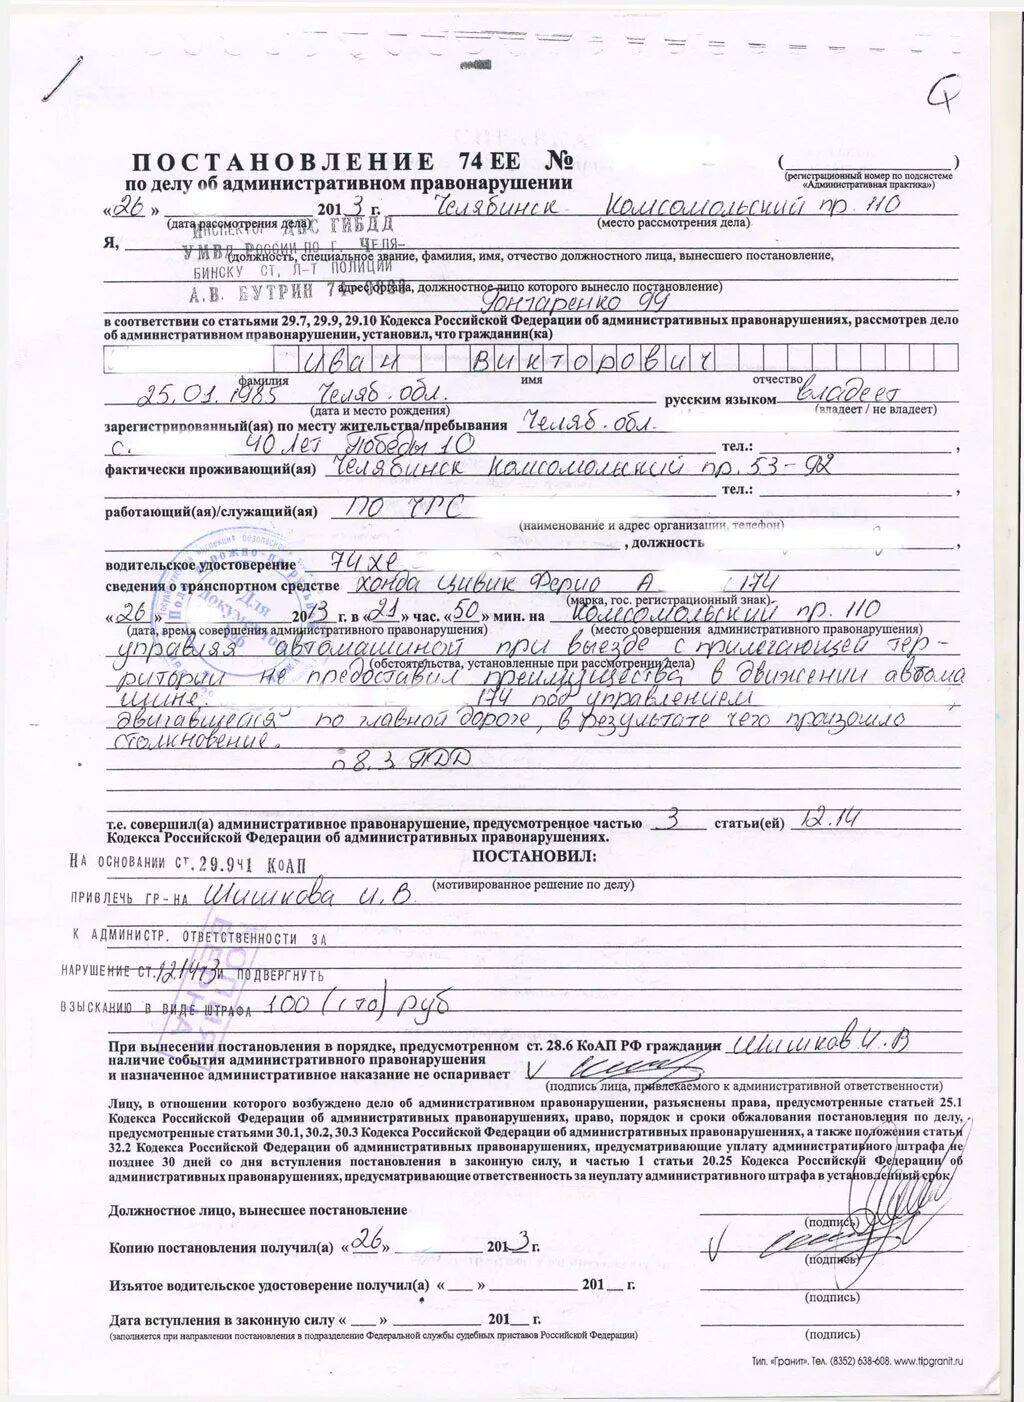 ПОСТАНОВЛЕНИЕ 74 ЕЕ №
по делу об административном правонарушении
(регистрационный номер по подсистеме «Административная практика»)
«26» 2013 г. Челябинск Комсомольский пр. 110
(дата рассмотрения дела) (место рассмотрения дела)
Я, ИНСПЕКТОР ДПС ГИБДД
УМВД РОССИИ ПО Г. ЧЕЛЯ-
(должность, специальное звание, фамилия, имя, отчество должностного лица, вынесшего постановление,
БИНСКУ СТ. Л-Т ПОЛИЦИИ
А.В. БУТРИН 74
адрес органа, должностное лицо которого вынесло постановление)
Гончаренко 99
в соответствии со статьями 29.7, 29.9, 29.10 Кодекса Российской Федерации об административных правонарушениях, рассмотрев дело
об административном правонарушении, установил, что гражданин(ка)
Иван Викторович
фамилия имя отчество
25.01.1985 Челяб. обл. русским языком владеет
(дата и место рождения) (владеет / не владеет)
зарегистрированный(ая) по месту жительства/пребывания Челяб. обл.
с. 40 Лет Победы 10 тел.: ,
фактически проживающий(ая) Челябинск Комсомольский пр. 53-92
тел.: ,
работающий(ая)/служащий(ая) ПО ЧРС
(наименование и адрес организации, телефон)
, должность ,
водительское удостоверение 74 ХЕ
сведения о транспортном средстве Хонда Цивик Ферио А 174
(марка, гос. регистрационный знак)
«26» 2013 г. в «21» час. «50» мин. на Комсомольский пр. 110
(дата, время совершения административного правонарушения) (место совершения административного правонарушения)
управляя автомашиной при выезде с прилегающей тер-
(обстоятельства, установленные при рассмотрении дела)
ритории не предоставил преимущества в движении автома
шине 174 под управлением ,
двигавшейся по главной дороге, в результате чего произошло
столкновение.
п 8.3 ПДД
т.е. совершил(а) административное правонарушение, предусмотренное частью 3 статьи(ей) 12.14
Кодекса Российской Федерации об административных правонарушениях.
ПОСТАНОВИЛ:
НА ОСНОВАНИИ СТ. 29.9Ч1 КоАП
(мотивированное решение по делу)
ПРИВЛЕЧЬ ГР-НА Шишкова И. В.
К АДМИНИСТР. ОТВЕТСТВЕННОСТИ ЗА
НАРУШЕНИЕ СТ. 12.14ч3 И ПОДВЕРГНУТЬ
ВЗЫСКАНИЮ В ВИДЕ ШТРАФА 100 (сто) руб
КОПИЯ ВЕРНА
При вынесении постановления в порядке, предусмотренном ст. 28.6 КоАП РФ гражданин Шишков И. В
наличие события административного правонарушения
и назначенное административное наказание не оспаривает V
(подпись лица, привлекаемого к административной ответственности)
Лицу, в отношении которого возбуждено дело об административном правонарушении, разъяснены права, предусмотренные статьей 25.1
Кодекса Российской Федерации об административных правонарушениях, право, порядок и сроки обжалования постановления по делу,
предусмотренные статьями 30.1, 30.2, 30.3 Кодекса Российской Федерации об административных правонарушениях, а также положения статьи
32.2 Кодекса Российской Федерации об административных правонарушениях, предусматривающие уплату административного штрафа не
позднее 30 дней со дня вступления постановления в законную силу, и частью 1 статьи 20.25 Кодекса Российской Федерации об
административных правонарушениях, предусматривающие ответственность за неуплату административного штрафа в установленный срок.
Должностное лицо, вынесшее постановление
(подпись)
Копию постановления получил(а) «26» 2013 г. V
(подпись)
Изъятое водительское удостоверение получил(а) « » 201 г.
(подпись)
Дата вступления в законную силу « » 201 г.
(заполняется при направлении постановления в подразделение Федеральной службы судебных приставов Российской Федерации) (подпись)
Тип. «Гранит». Тел. (8352) 638-608. www.tipgranit.ru